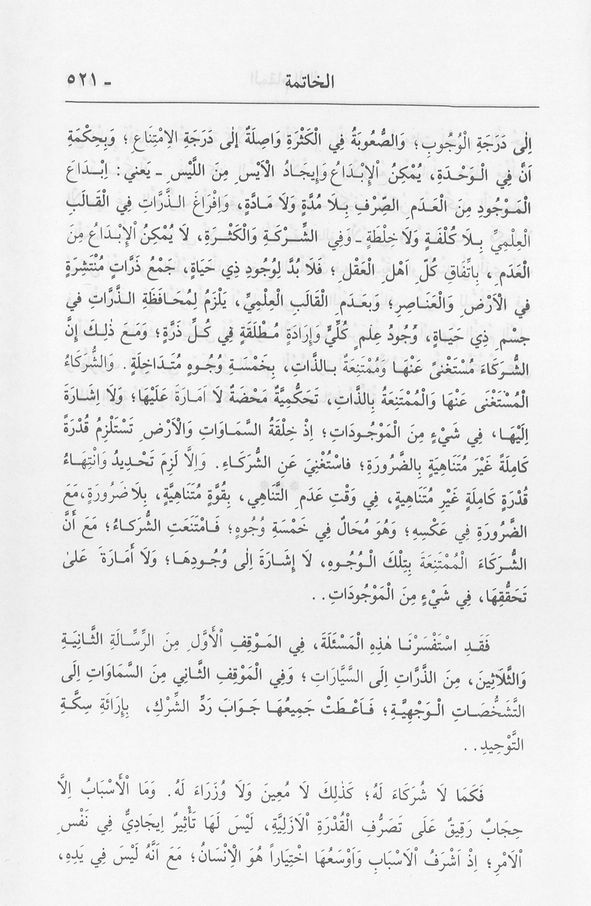 الخاتمة - ٥٢١
اِلٰى دَرَجَةِ الْوُجُوبِ؛ وَالصُّعُوبَةُ فِي الْكَثْرَةِ وَاصِلَةٌ اِلٰى دَرَجَةِ الْاِمْتِنَاعِ؛ وَبِحِكْمَةِ
اَنَّ فِي الْوَحْدَةِ، يُمْكِنُ الْاِبْدَاعُ وَاِيجَادُ الْاَيْسِ مِنَ اللَّيْسِ - يَعني: اِبْدَاعَ
الْمَوْجُودِ مِنَ الْعَدَمِ الصِّرْفِ بِلَا مُدَّةٍ وَلَا مَادَّةٍ، وَاِفْرَاغَ الذَّرَّاتِ فِي الْقَالَبِ
الْعِلْمِيِّ بِلَا كُلْفَةٍ وَلَا خِلْطَةٍ - وَفِي الشِّرْكَةِ وَالْكَثْرَةِ، لَا يُمْكِنُ الْاِبْدَاعُ مِنَ
الْعَدَمِ، بِاتِّفَاقِ كُلِّ اَهْلِ الْعَقْلِ؛ فَلَا بُدَّ لِوُجُودِ ذِي حَيَاةٍ، جَمْعُ ذَرَّاتٍ مُنْتَشِرَةٍ
فِي الْاَرْضِ وَالْعَنَاصِرِ؛ وَبِعَدَمِ الْقَالَبِ الْعِلْمِيِّ، يَلْزَمُ لِمُحَافَظَةِ الذَّرَّاتِ فِي
جِسْمِ ذِي حَيَاةٍ، وُجُودُ عِلْمٍ كُلِّيٍّ وَاِرَادَةٍ مُطْلَقَةٍ فِي كُلِّ ذَرَّةٍ؛ وَمَعَ ذٰلِكَ اِنَّ
الشُّرَكَاءَ مُسْتَغْنىً عَنْهَا وَمُمْتَنِعَةٌ بِالذَّاتِ، بِخَمْسَةِ وُجُوهٍ مُتَدَاخِلَةٍ. وَالشُّرَكَاءُ
الْمُسْتَغْنٰى عَنْهَا وَالْمُمْتَنِعَةُ بِالذَّاتِ، تَحَكُّمِيَّةٌ مَحْضَةٌ لَا اَمَارَةَ عَلَيْهَا؛ وَلَا اِشَارَةَ
اِلَيْهَا، فِي شَيْءٍ مِنَ الْمَوْجُودَاتِ؛ اِذْ خِلْقَةُ السَّمَاوَاتِ وَالْاَرْضِ تَسْتَلْزِمُ قُدْرَةً
كَامِلَةً غَيْرَ مُتَنَاهِيَةٍ بِالضَّرُورَةِ؛ فَاسْتُغْنِيَ عَنِ الشُّرَكَاءِ. وَاِلَّا لَزِمَ تَحْدِيدُ وَانْتِهَاءُ
قُدْرَةٍ كَامِلَةٍ غَيْرِ مُتَنَاهِيَةٍ، فِي وَقْتِ عَدَمِ التَّنَاهِي، بِقُوَّةٍ مُتَنَاهِيَّةٍ، بِلَا ضَرُورَةٍ، مَعَ
الضَّرُورَةِ فِي عَكْسِهِ؛ وَهُوَ مُحَالٌ فِي خَمْسَةِ وُجُوهٍ؛ فَامْتَنَعَتِ الشُّرَكَاءُ؛ مَعَ أَنَّ
الشُّرَكَاءَ الْمُمْتَنِعَةَ بِتِلْكَ الْوُجُوهِ، لَا اِشَارَةَ اِلٰى وُجُودِهَا؛ وَلَا أَمَارَةَ عَلىٰ
تَحَقُّقِهَا، فِي شَيْءٍ مِنَ الْمَوْجُودَاتِ..
فَقَدِ اسْتَفْسَرْنَا هٰذِهِ الْمَسْئَلَةَ، فِي الْمَوْقِفِ الْاَوَّلِ مِنَ الرِّسَالَةِ الثَّانِيَةِ
وَالثَّلَاثِينَ، مِنَ الذَّرَّاتِ اِلَى السَّيَّارَاتِ؛ وَفِي الْمَوْقِفِ الثَّانِي مِنَ السَّمَاوَاتِ اِلَى
التَّشَخُّصَاتِ الْوَجْهِيَّةِ؛ فَاَعْطَتْ جَمِيعُهَا جَوَابَ رَدِّ الشِّرْكِ، بِاِرَائَةِ سِكَّةِ
التَّوْحِيدِ..
فَكَمَا لَا شُرَكَاءَ لَهُ؛ كَذٰلِكَ لَا مُعِينَ وَلَا وُزَرَاءَ لَهُ. وَمَا الْاَسْبَابُ اِلَّا
حِجَابٌ رَقِيقٌ عَلَى تَصَرُّفِ الْقُدْرَةِ الْاَزَلِيَّةِ، لَيْسَ لَهَا تَأْثِيرٌ اِيجَادِيٌّ فِي نَفْسِ
الْاَمْرِ؛ اِذْ اَشْرَفُ الْاَسْبَابِ وَاَوْسَعُهَا اخْتِيَاراً هُوَ الْاِنْسَانُ؛ مَعَ اَنَّهُ لَيْسَ فِي يَدِهِ،